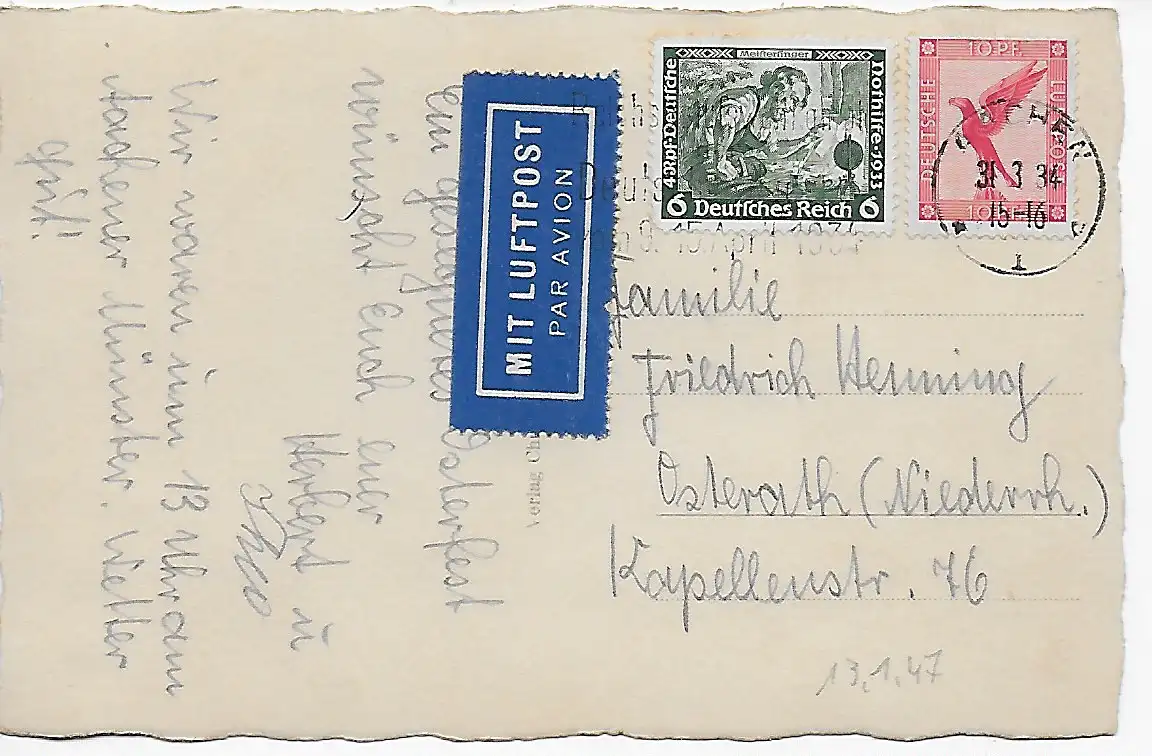 Ein gesegnetes Osterfest
wünscht Euch euer
Herbert u
Theo
Wir waren um 13 Uhr am
Aachener Münster. Wetter
gut!
MIT LUFTPOST
PAR AVION
Verlag
Meistersinger
4 Rpf-Deutsche
Nothilfe-1933
6 Deutsches Reich 6
10 PF.
DEUTSCHE
LUFTPOST
10 PF.
31 3 34
15-16
1
9.-15. April 1934
Familie
Friedrich Henning
Osterath (Niederrh.)
Kapellenstr. 76
13.1.47